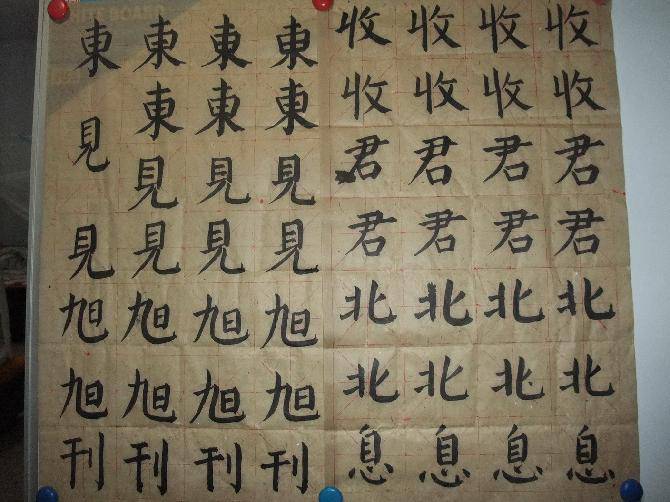 東東東東收收收收
見東東東收收收收
見見見君君君君
見見見見君君君君
旭旭旭旭北北北北
旭旭旭旭北北北北
刊刊刊刊息息息息